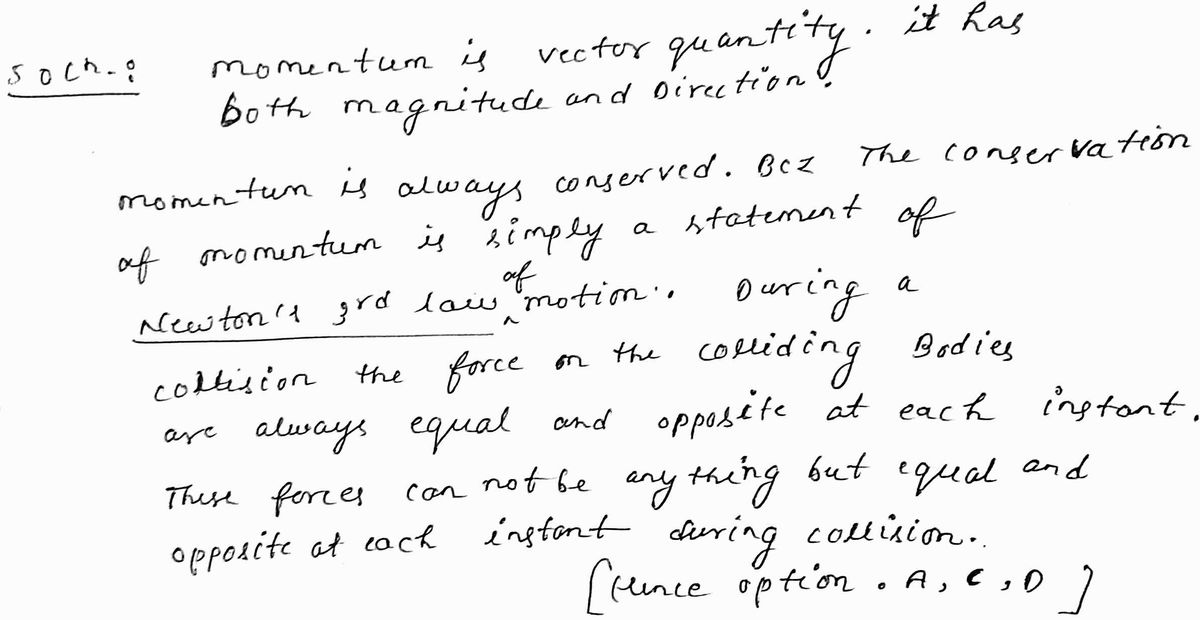 Soln.: momentum is vector quantity. it has
both magnitude and Direction.
momentum is always conserved. Bcz The conservation
of momentum is simply a statement of
Newton's 3rd law of motion. During a
collision the force on the colliding Bodies
are always equal and opposite at each instant.
These forces can not be anything but equal and
opposite at each instant during collision.
[Hence option . A, C, D]